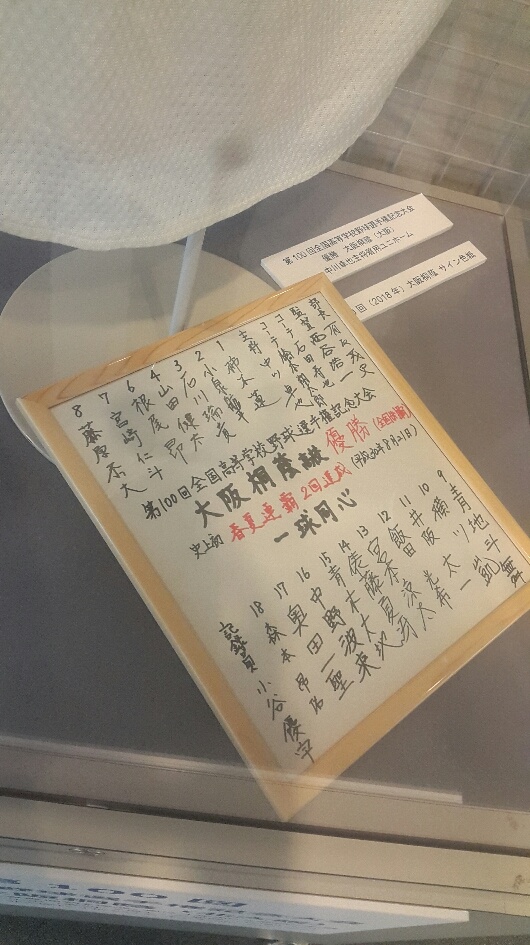 第100回全国高等学校野球選手権記念大会
優勝 大阪桐蔭（大阪）
中川卓也主将着用ユニホーム
回（2018年）大阪桐蔭 サイン色紙
部長 有友茂史
監督 西谷浩一
コーチ 石田寿也
コーチ 橋本翔太郎
主将 中川卓也
1 柿木蓮
2 小泉航平
3 石川瑞貴
4 山田健太
5
6 根尾昂
7 宮崎仁斗
8 藤原恭大
第100回全国高等学校野球選手権記念大会
大阪桐蔭 優勝（全国制覇）
史上初 春夏連覇2回達成（平成30年8月21日）
一球同心
9 青地斗舞
10 横川凱
11 井阪太一
12 飯田光希
13 宮本涼太
14 俵藤夏冴
15 青木大地
16 中野波来
17 奥田一聖
18 森本昂佑
記録員 小谷優宇
100回